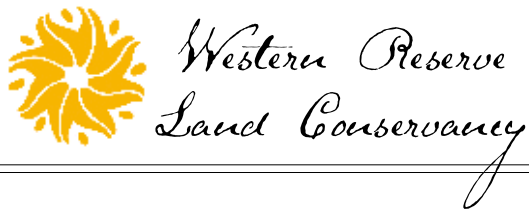 Western Reserve
Land Conservancy